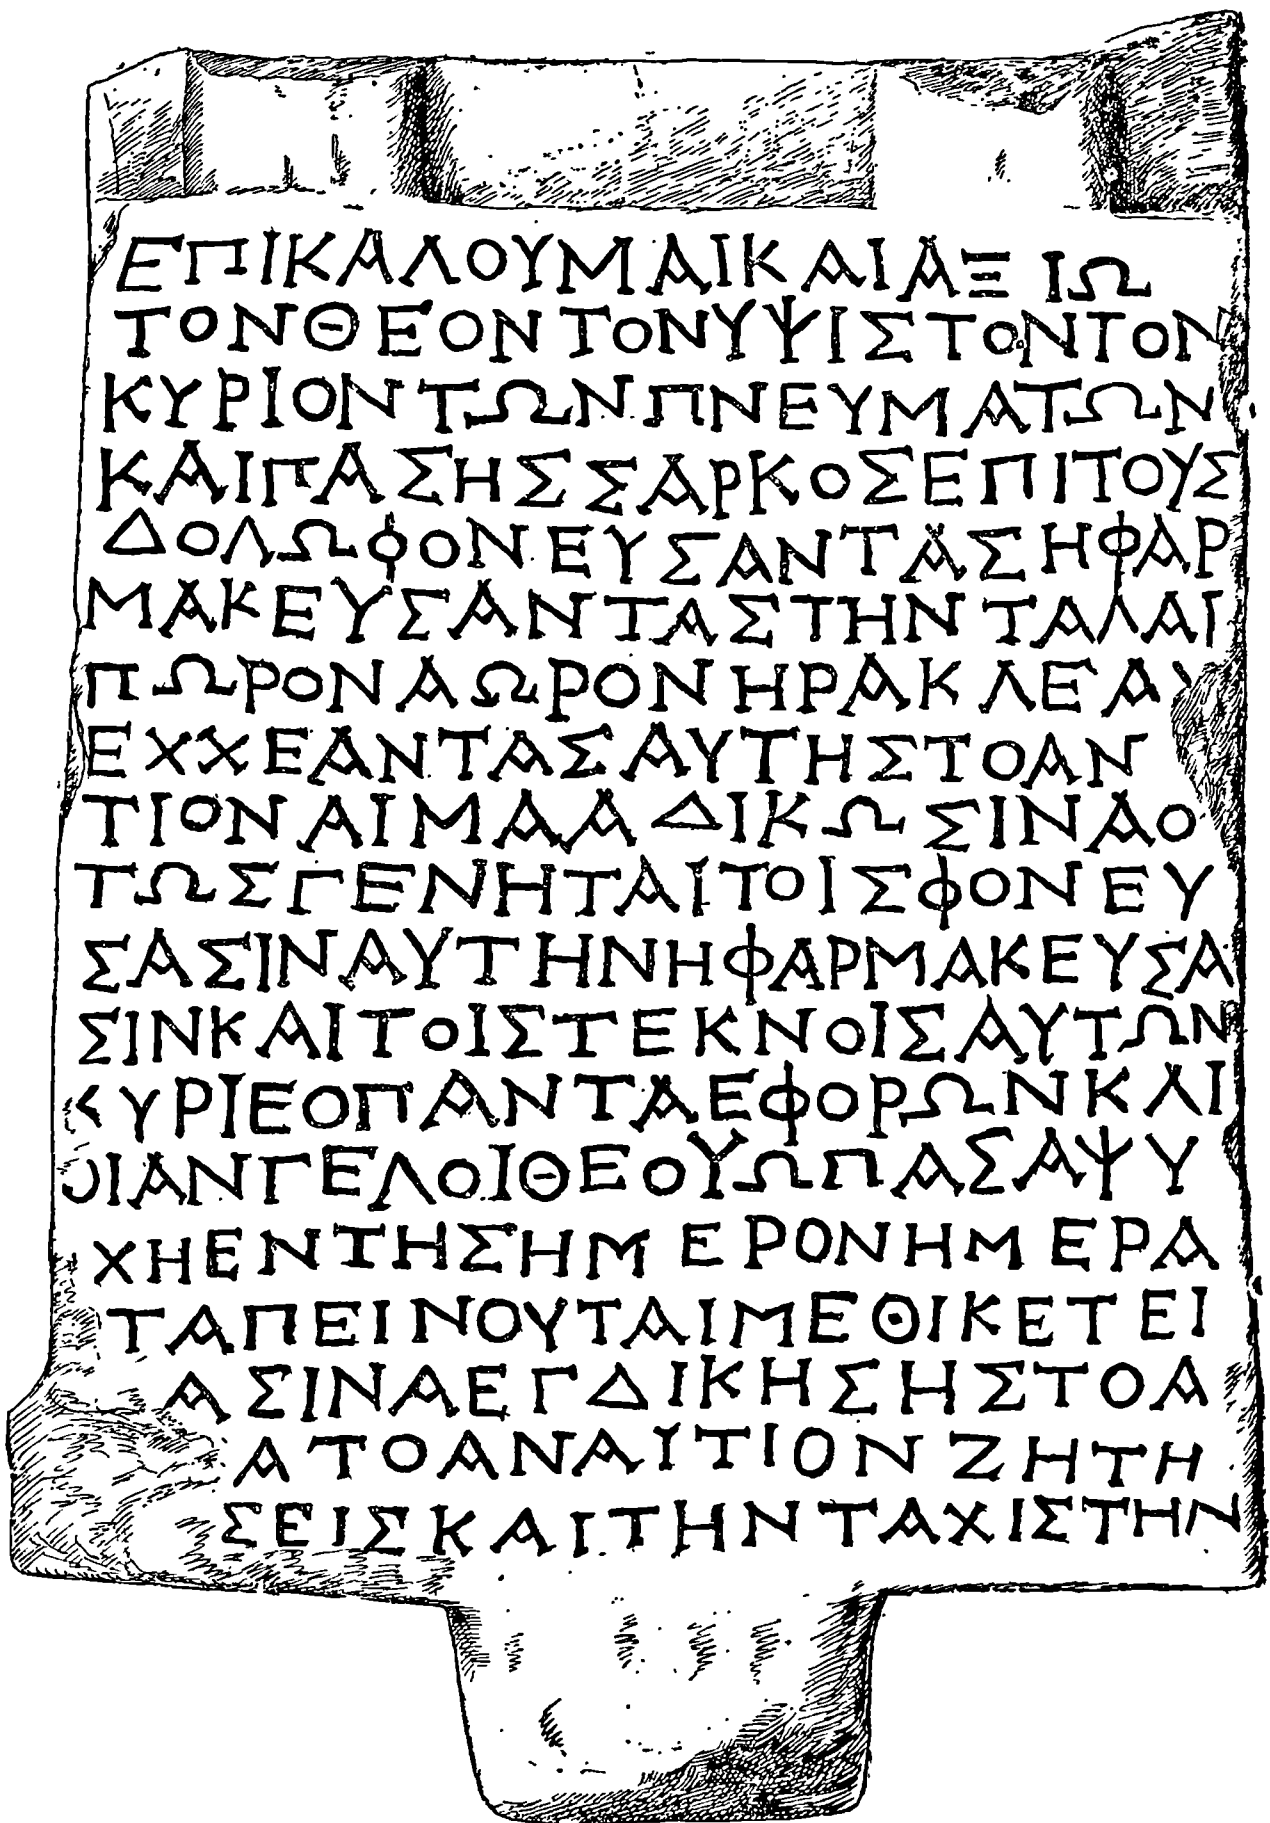 ΕΠΙΚΑΛΟΥΜΑΙΚΑΙΑΞΙΩ
ΤΟΝΘΕΟΝΤΟΝΥΨΙΣΤΟΝΤΟΝ
ΚΥΡΙΟΝΤΩΝΠΝΕΥΜΑΤΩΝ
ΚΑΙΠΑΣΗΣΣΑΡΚΟΣΕΠΙΤΟΥΣ
ΔΟΛΩΦΟΝΕΥΣΑΝΤΑΣΗΦΑΡ
ΜΑΚΕΥΣΑΝΤΑΣΤΗΝΤΑΛΑΙ
ΠΩΡΟΝΑΩΡΟΝΗΡΑΚΛΕΑ
ΕΧΧΕΑΝΤΑΣΑΥΤΗΣΤΟΑΝ
ΤΙΟΝΑΙΜΑΑΔΙΚΩΣΙΝΑΟ
ΤΩΣΓΕΝΗΤΑΙΤΟΙΣΦΟΝΕΥ
ΣΑΣΙΝΑΥΤΗΝΗΦΑΡΜΑΚΕΥΣΑ
ΣΙΝΚΑΙΤΟΙΣΤΕΚΝΟΙΣΑΥΤΩΝ
ΚΥΡΙΕΟΠΑΝΤΑΕΦΟΡΩΝΚΑΙ
ΟΙΑΝΓΕΛΟΙΘΕΟΥΩΠΑΣΑΨΥ
ΧΗΕΝΤΗΣΗΜΕΡΟΝΗΜΕΡΑ
ΤΑΠΕΙΝΟΥΤΑΙΜΕΘΙΚΕΤΕΙ
ΑΣΙΝΑΕΓΔΙΚΗΣΗΣΤΟΑ
ΑΤΟΑΝΑΙΤΙΟΝΖΗΤΗ
ΣΕΙΣΚΑΙΤΗΝΤΑΧΙΣΤΗΝ